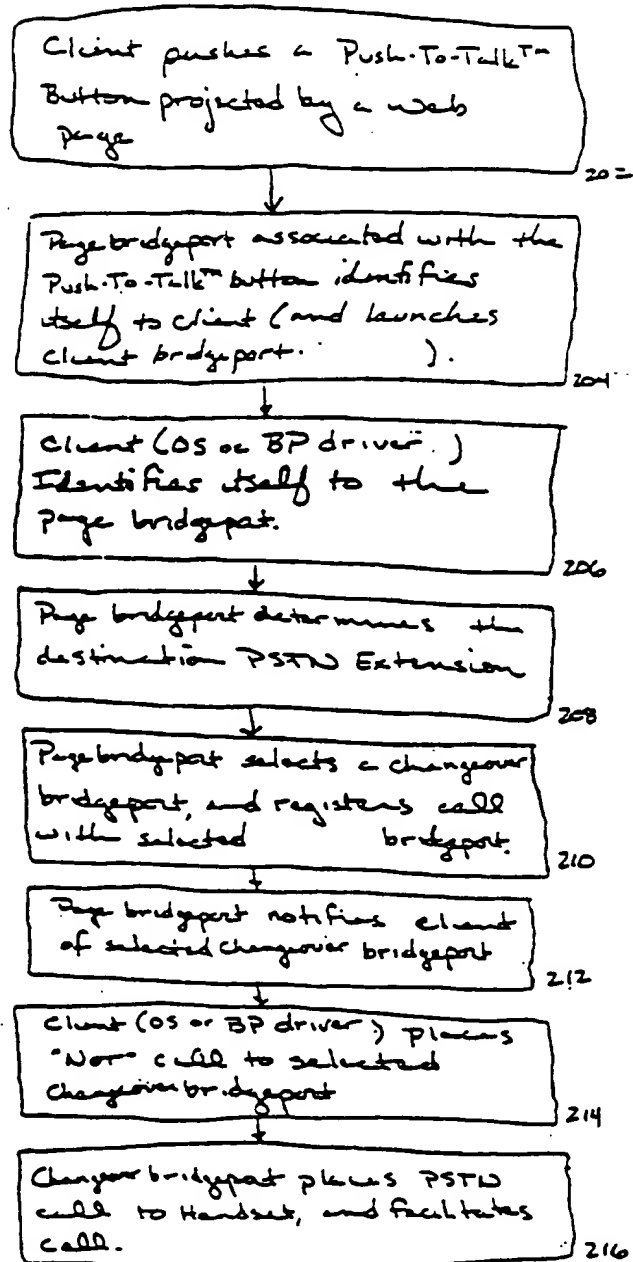 Client pushes a Push-To-Talk™
Button projected by a web
page
202
Page bridgeport associated with the
Push-To-Talk™ button identifies
itself to client (and launches
client bridgeport. ).
204
Client (OS or BP driver.)
Identifies itself to the
Page bridgeport.
206
Page bridgeport determines the
destination PSTN Extension
208
Page bridgeport selects a changeover
bridgeport, and registers call
with selected bridgeport.
210
Page bridgeport notifies client
of selected changeover bridgeport
212
Client (OS or BP driver) places
call to selected
Changeover bridgeport
214
Changeover bridgeport places PSTN
call to Handset, and facilitates
call.
216